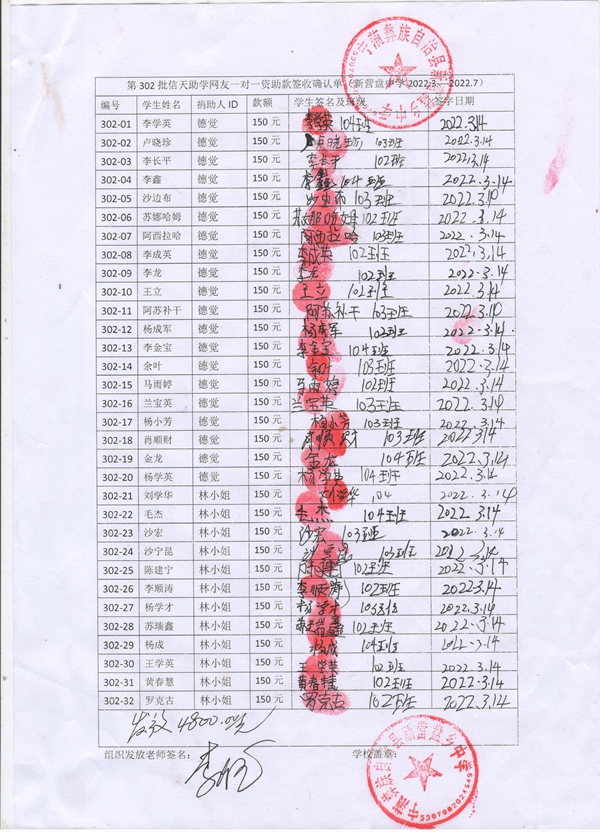 第 302 批信天助学网友一对一资助款签收确认单（新营盘中学 2022.3——2022.7）
编号 学生姓名 捐助人 ID 款额 学生签名及班级 签字日期
302-01 李学英 德觉 150 元 李学英 104班 2022.3.14
302-02 卢晓珍 德觉 150 元 卢晓珍 103班 2022.3.14
302-03 李长平 德觉 150 元 李长平 102班 2022.3.14
302-04 李鑫 德觉 150 元 李鑫 104班 2022.3.14
302-05 沙边布 德觉 150 元 沙边布 103班 2022.3.14
302-06 苏娜哈姆 德觉 150 元 苏娜哈姆 102班 2022.3.14
302-07 阿西拉哈 德觉 150 元 阿西拉哈 103班 2022.3.14
302-08 李成英 德觉 150 元 李成英 102班 2022.3.14
302-09 李龙 德觉 150 元 李龙 102班 2022.3.14
302-10 王立 德觉 150 元 王立 102班 2022.3.14
302-11 阿苏补干 德觉 150 元 阿苏补干 103班 2022.3.14
302-12 杨成军 德觉 150 元 杨成军 102班 2022.3.14.
302-13 李金宝 德觉 150 元 李金宝 104班 2022.3.14
302-14 余叶 德觉 150 元 余叶 103班 2022.3.14
302-15 马雨婷 德觉 150 元 马雨婷 102班 2022.3.14
302-16 兰宝英 德觉 150 元 兰宝英 103班 2022.3.14
302-17 杨小芳 德觉 150 元 杨小芳 103班 2022.3.14
302-18 肖顺财 德觉 150 元 肖顺财 103班 2022.3.14
302-19 金龙 德觉 150 元 金龙 104班 2022.3.14
302-20 杨学英 德觉 150 元 杨学英 104班 2022.3.14
302-21 刘学华 林小姐 150 元 刘学华 104 2022.3.14
302-22 毛杰 林小姐 150 元 毛杰 104班 2022.3.14
302-23 沙宏 林小姐 150 元 沙宏 103班 2022.3.14
302-24 沙宁昆 林小姐 150 元 103班 2022.3.14
302-25 陈建宁 林小姐 150 元 102班 2022.3.14
302-26 李顺涛 林小姐 150 元 李顺涛 102班 2022.3.14
302-27 杨学才 林小姐 150 元 杨学才 103班 2022.3.14
302-28 苏瑞鑫 林小姐 150 元 苏瑞鑫 102班 2022.3.14
302-29 杨成 林小姐 150 元 杨成 104班 2022.3.14
302-30 王学英 林小姐 150 元 王学英 102班 2022.3.14
302-31 黄春慧 林小姐 150 元 黄春慧 102班 2022.3.14
302-32 罗克古 林小姐 150 元 罗克古 102班 2022.3.14
发放 4800.0元
组织发放老师签名： 学校盖章：
宁蒗彝族自治县新营盘乡中学
5307902024549